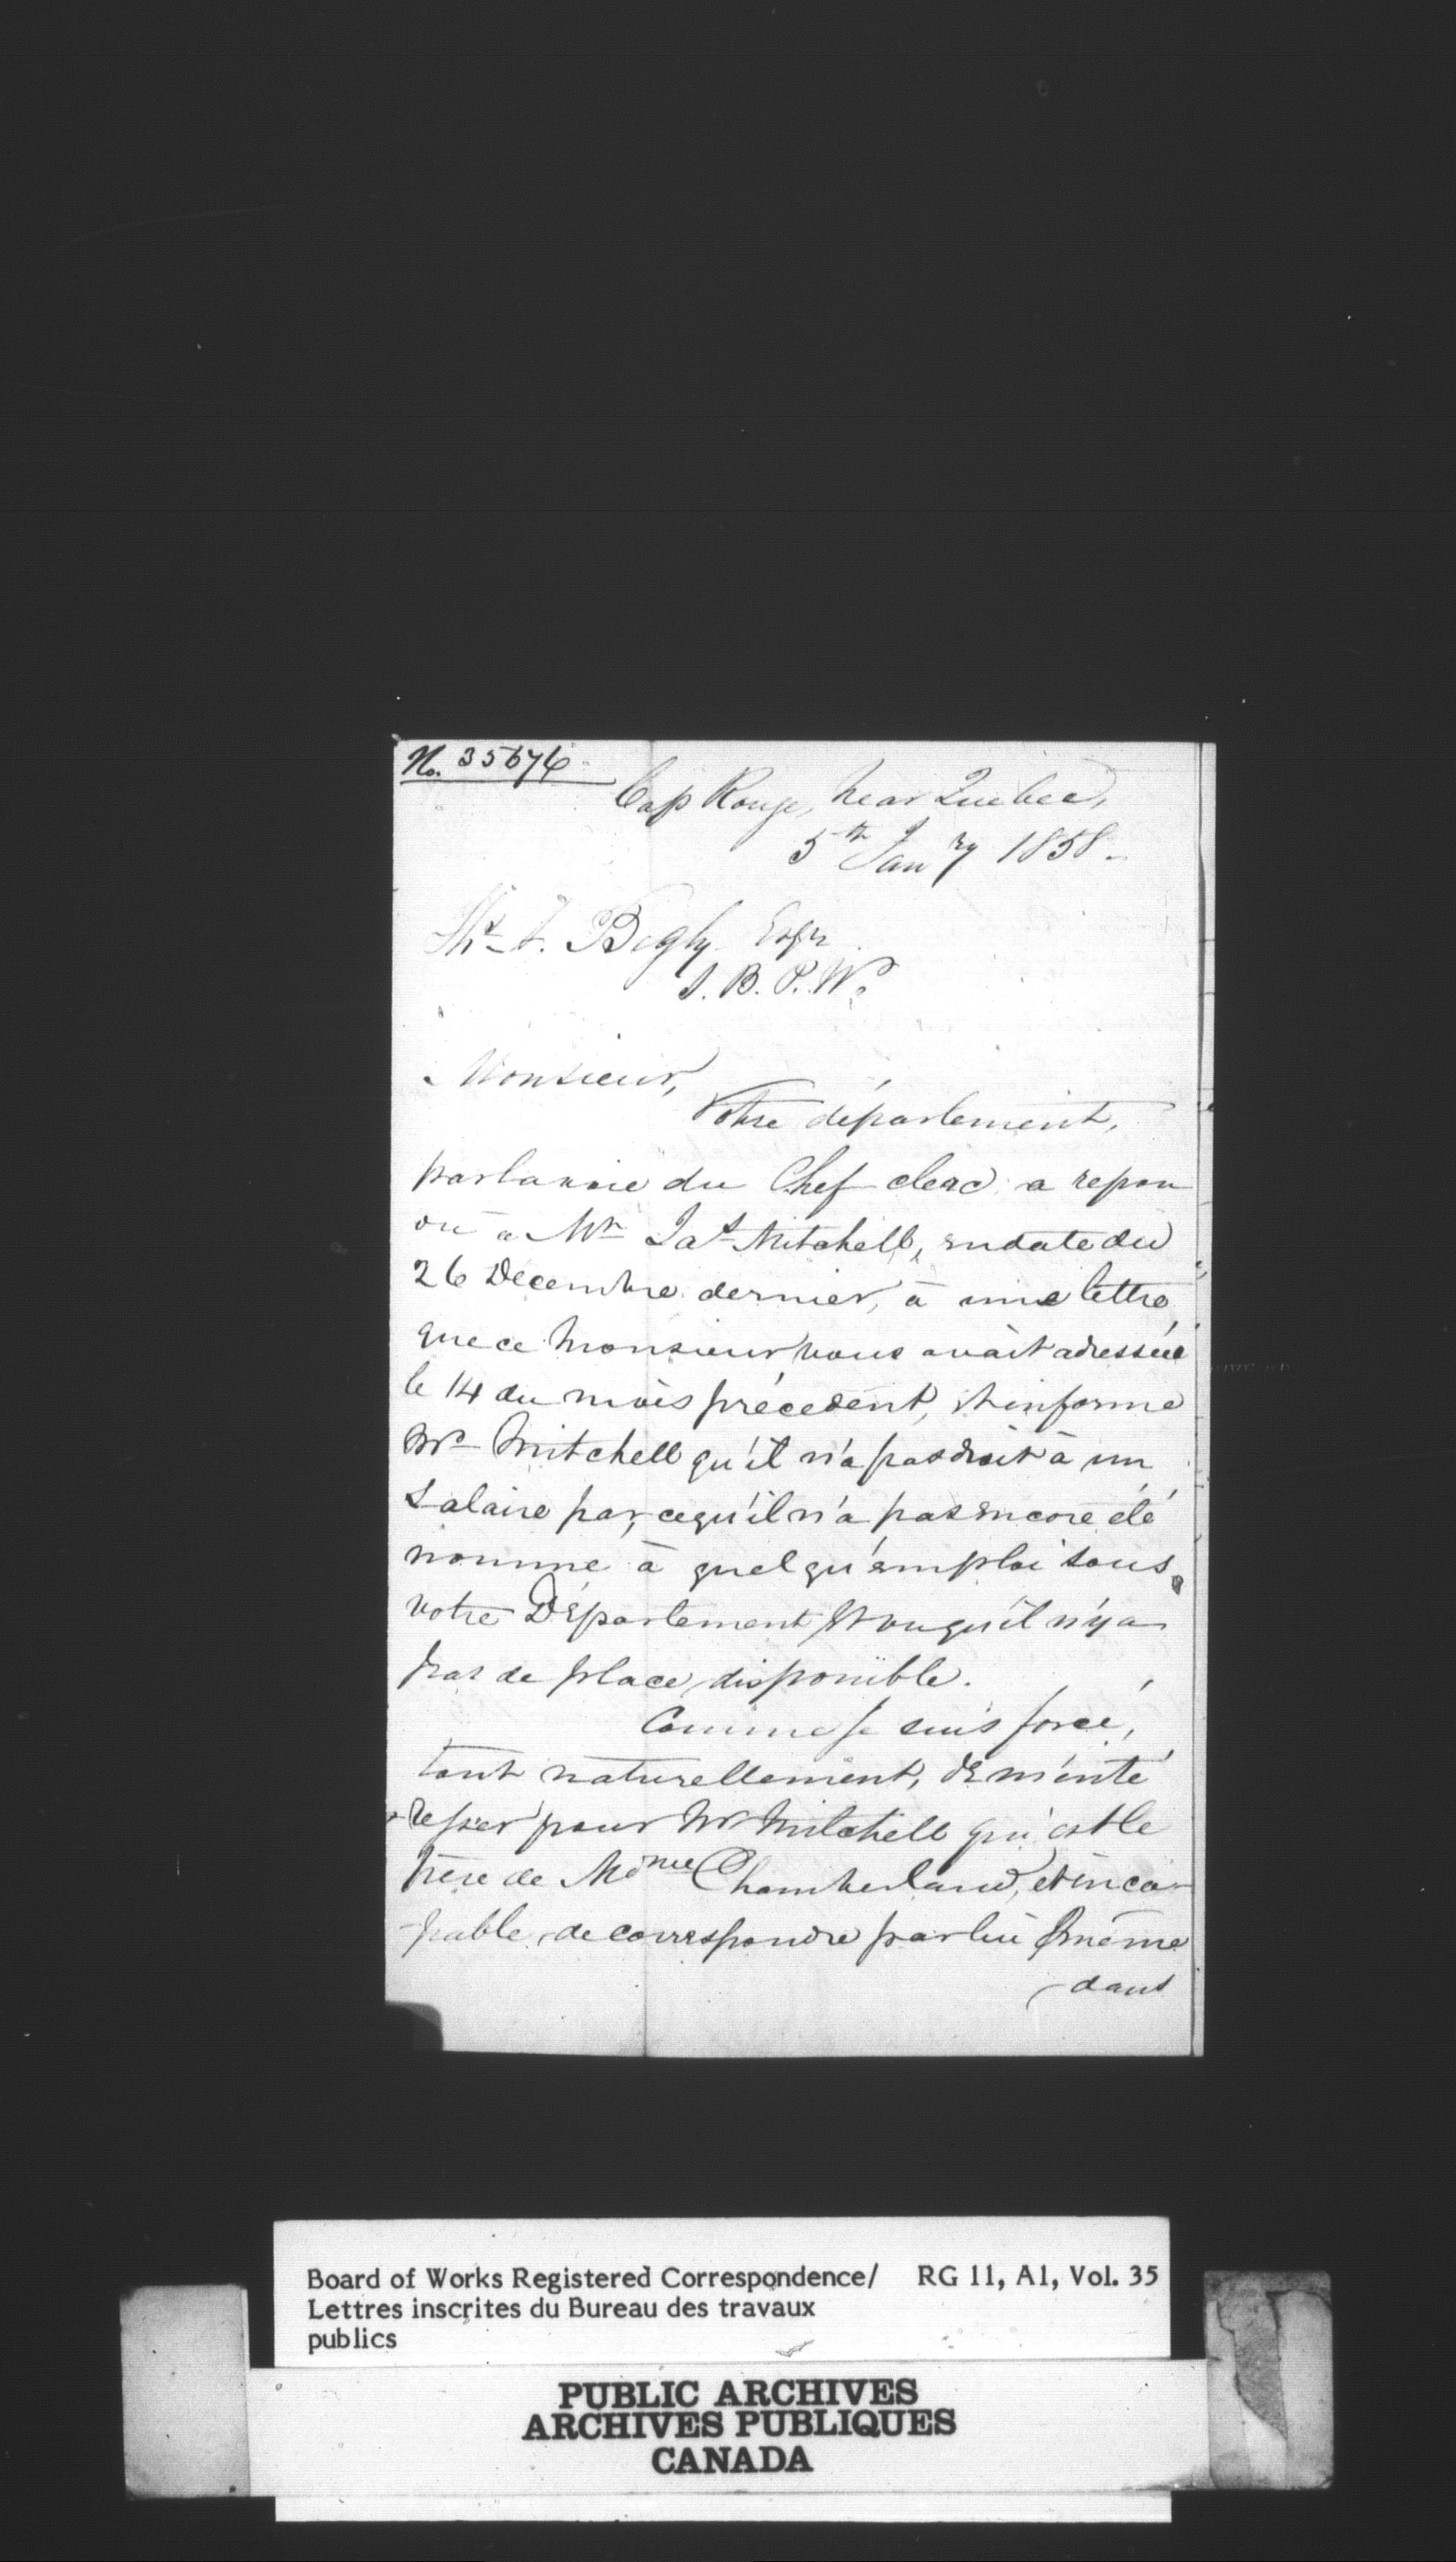 No. 35676
Cap Rouge, near Quebec,
5th Janry 1858.
Ths A. Begly Esqr
S. B. P. W.
Monsieur,
Votre département,
par la voie du Chef clerc a repon
du a Mr Jas Mitchell, en date du
26 Decembre dernier, à une lettre
que ce Monsieur vous avait adressée
le 14 du mois précedent, et informe
Mr Mitchell qu'il n'a pas droit à un
Salaire parcequ'il n'a pas encore été
nomme à quelqu'emploi sous
votre Département et ou qu'il n'y a
pas de place disponible.
Comme je suis forcé,
tout naturellement, de m'inté
resser pour Mr Mitchell qui est le
frère de Mdme Chamberland, et inca-
pable de correspondre par lui même
dans
Board of Works Registered Correspondence/ RG 11, A1, Vol. 35
Lettres inscrites du Bureau des travaux
publics
PUBLIC ARCHIVES
ARCHIVES PUBLIQUES
CANADA